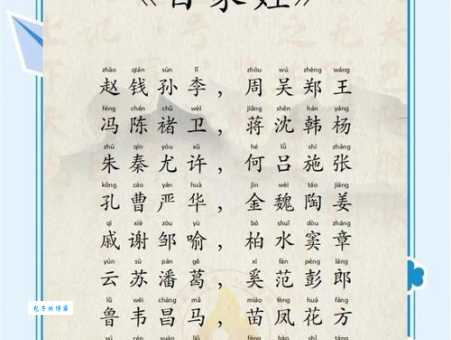 《百家姓》
zhào qián sūn lǐ zhōu wú zhèng wáng
赵钱孙李，周吴郑王
féng chén chǔ wèi jiǎng shěn hán yáng
冯陈褚卫，蒋沈韩杨
zhū qín yóu xǔ hé lǚ shī zhāng
朱秦尤许，何吕施张
kǒng cáo yán huà jīn wèi táo jiāng
孔曹严华，金魏陶姜
qī xiè zōu yù bó shuǐ dòu zhāng
戚谢邹喻，柏水窦章
yún sū pān gě xī fàn péng láng
云苏潘葛，奚范彭郎
lǔ wéi chāng mǎ miáo fèng huā fāng
鲁韦昌马，苗凤花方